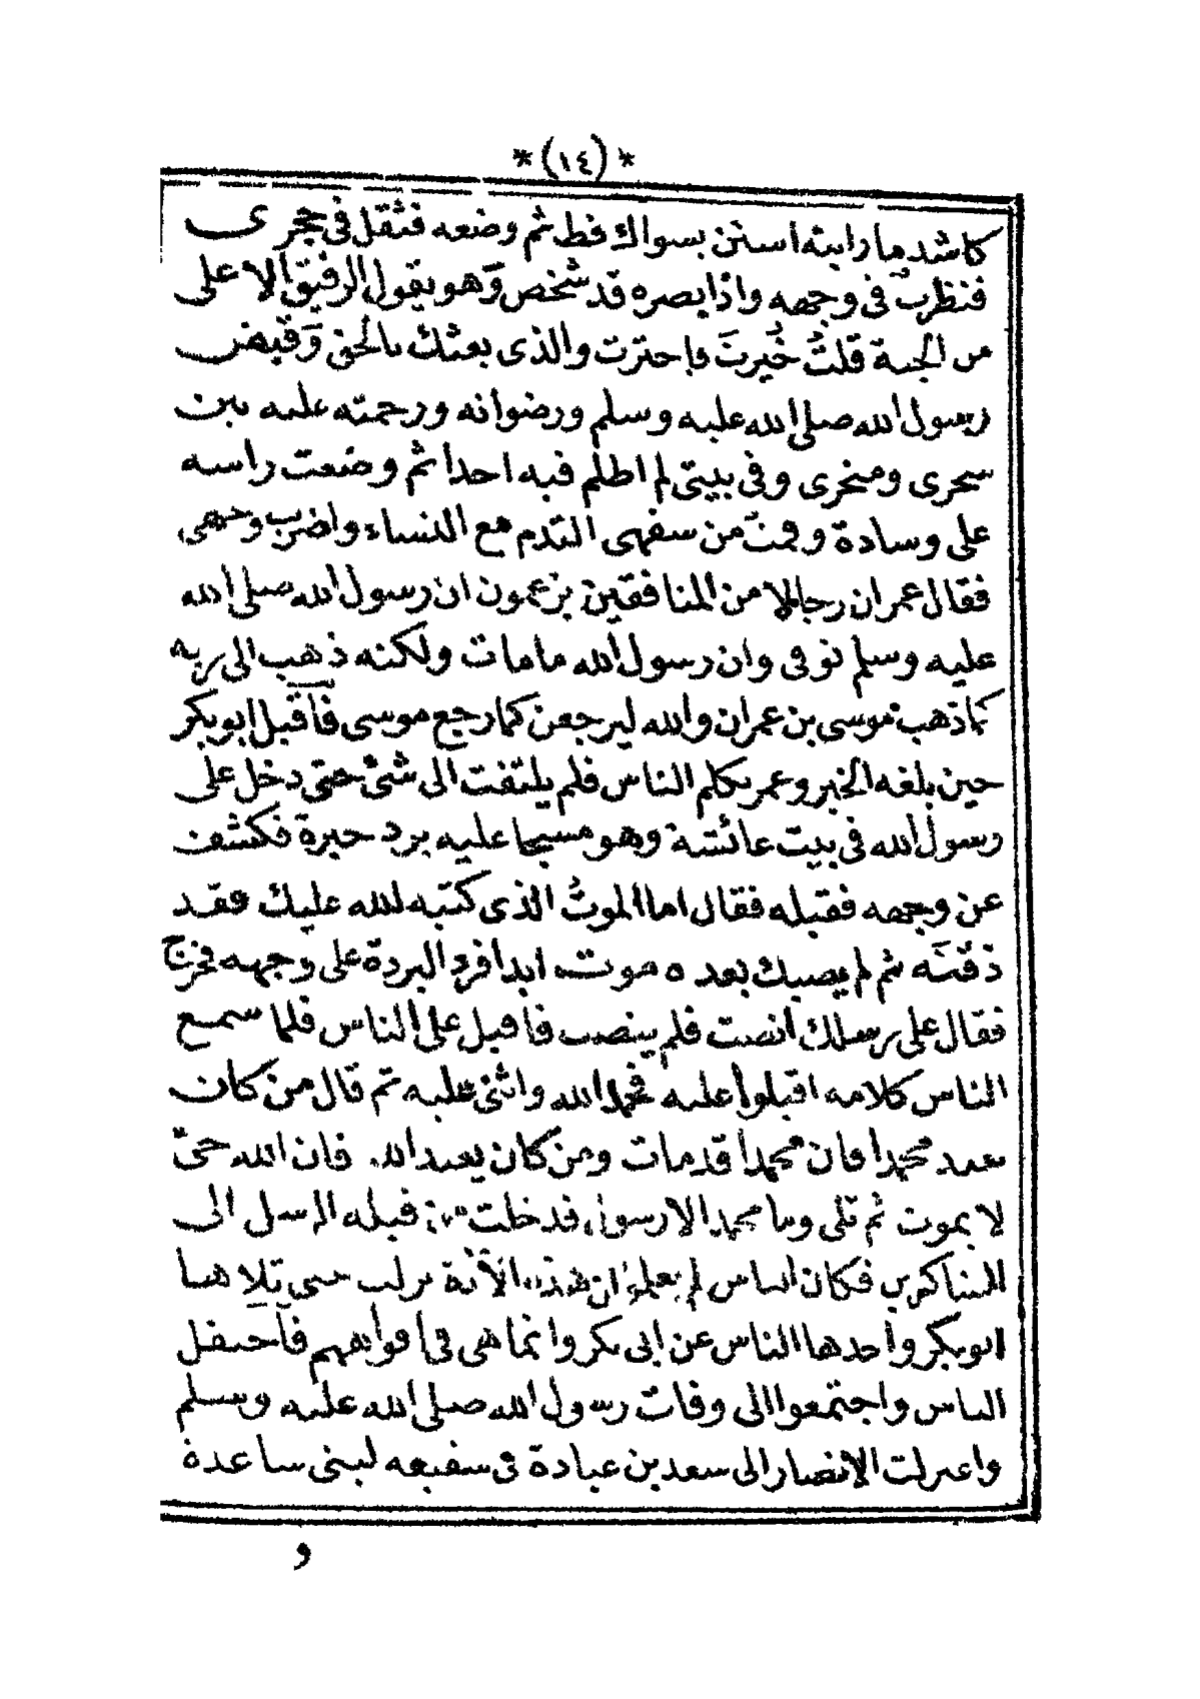 *(١٤)*
كاشد ما رايته استن بسواك قط ثم وضعه فثقل في حجرى
فنظرت في وجهه واذا بصره قد شخص وهو يقول الرفيق الاعلى
من الجنة قلتُ خُيرتَ فاخترت والذى بعثك بالحق وقبض
رسول الله صلى الله عليه وسلم ورضوانه ورحمته عليه بين
سحرى ومنخرى وفي بيتى لم اظلم فيه احدا ثم وضعت راسه
على وسادة وقمت من سفهى التدم مع النساء واضرب وجهى
فقال عمران رجالا من المنافقين يزعمون ان رسول الله صلى الله
عليه وسلم توفى وان رسول الله مامات ولكنه ذهب الى ربه
كما ذهب موسى بن عمران والله ليرجعن كما رجع موسى فاقبل ابو بكر
حين بلغه الخبر وعمر يكلم الناس فلم يلتفت الى شئ حتى دخل على
رسول الله في بيت عائشة وهو مسجا عليه برد حبرة فكشف
عن وجهه فقبله فقال اما الموتُ الذى كتبه لله عليك فقد
ذقته ثم لم يصبك بعده موت ابدا فرد البردة على وجهه فخرج
فقال على رسلك انصت فلم ينصب فاقبل على الناس فلما سمع
الناس كلامه اقبلوا عليه فحمد الله واثنى عليه ثم قال من كان
يعبد محمدا فان محمدا قد مات ومن كان يعبد الله فان الله حىّ
لا يموت ثم تلى وما محمد الا رسول قد خلت من قبله الرسل الى
الشاكرين فكان الناس لم يعلموا ان هذه الآية نزلت حتى تلاها
ابو بكر واخدها الناس عن ابى بكر وانما هى في افواههم فاحتفل
الناس واجتمعوا الى وفات رسول الله صلى الله عليه وسلم
واعتزلت الانصار الى سعد بن عبادة فى سقيفه لبنى ساعدة
و